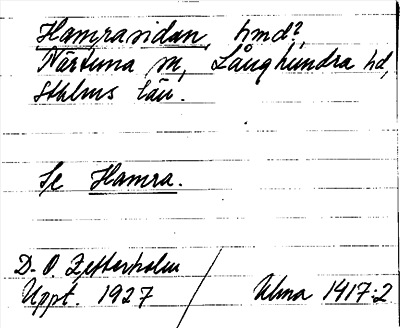 Hamrasidan, hmd?,
Närtuna sn, Långhundra hd,
Sthlms län.
Se Hamra.
D. O. Zetterholm
Uppt. 1927 / Ulma 1417:2